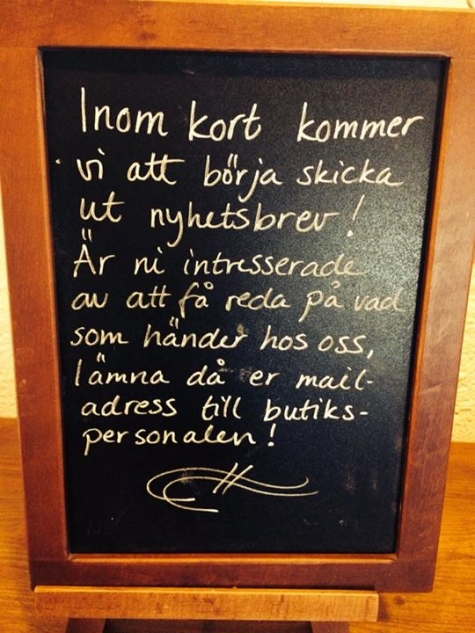 Inom kort kommer
vi att börja skicka
ut nyhetsbrev!
Är ni intresserade
av att få reda på vad
som händer hos oss,
lämna då er mail-
adress till butiks-
personalen!